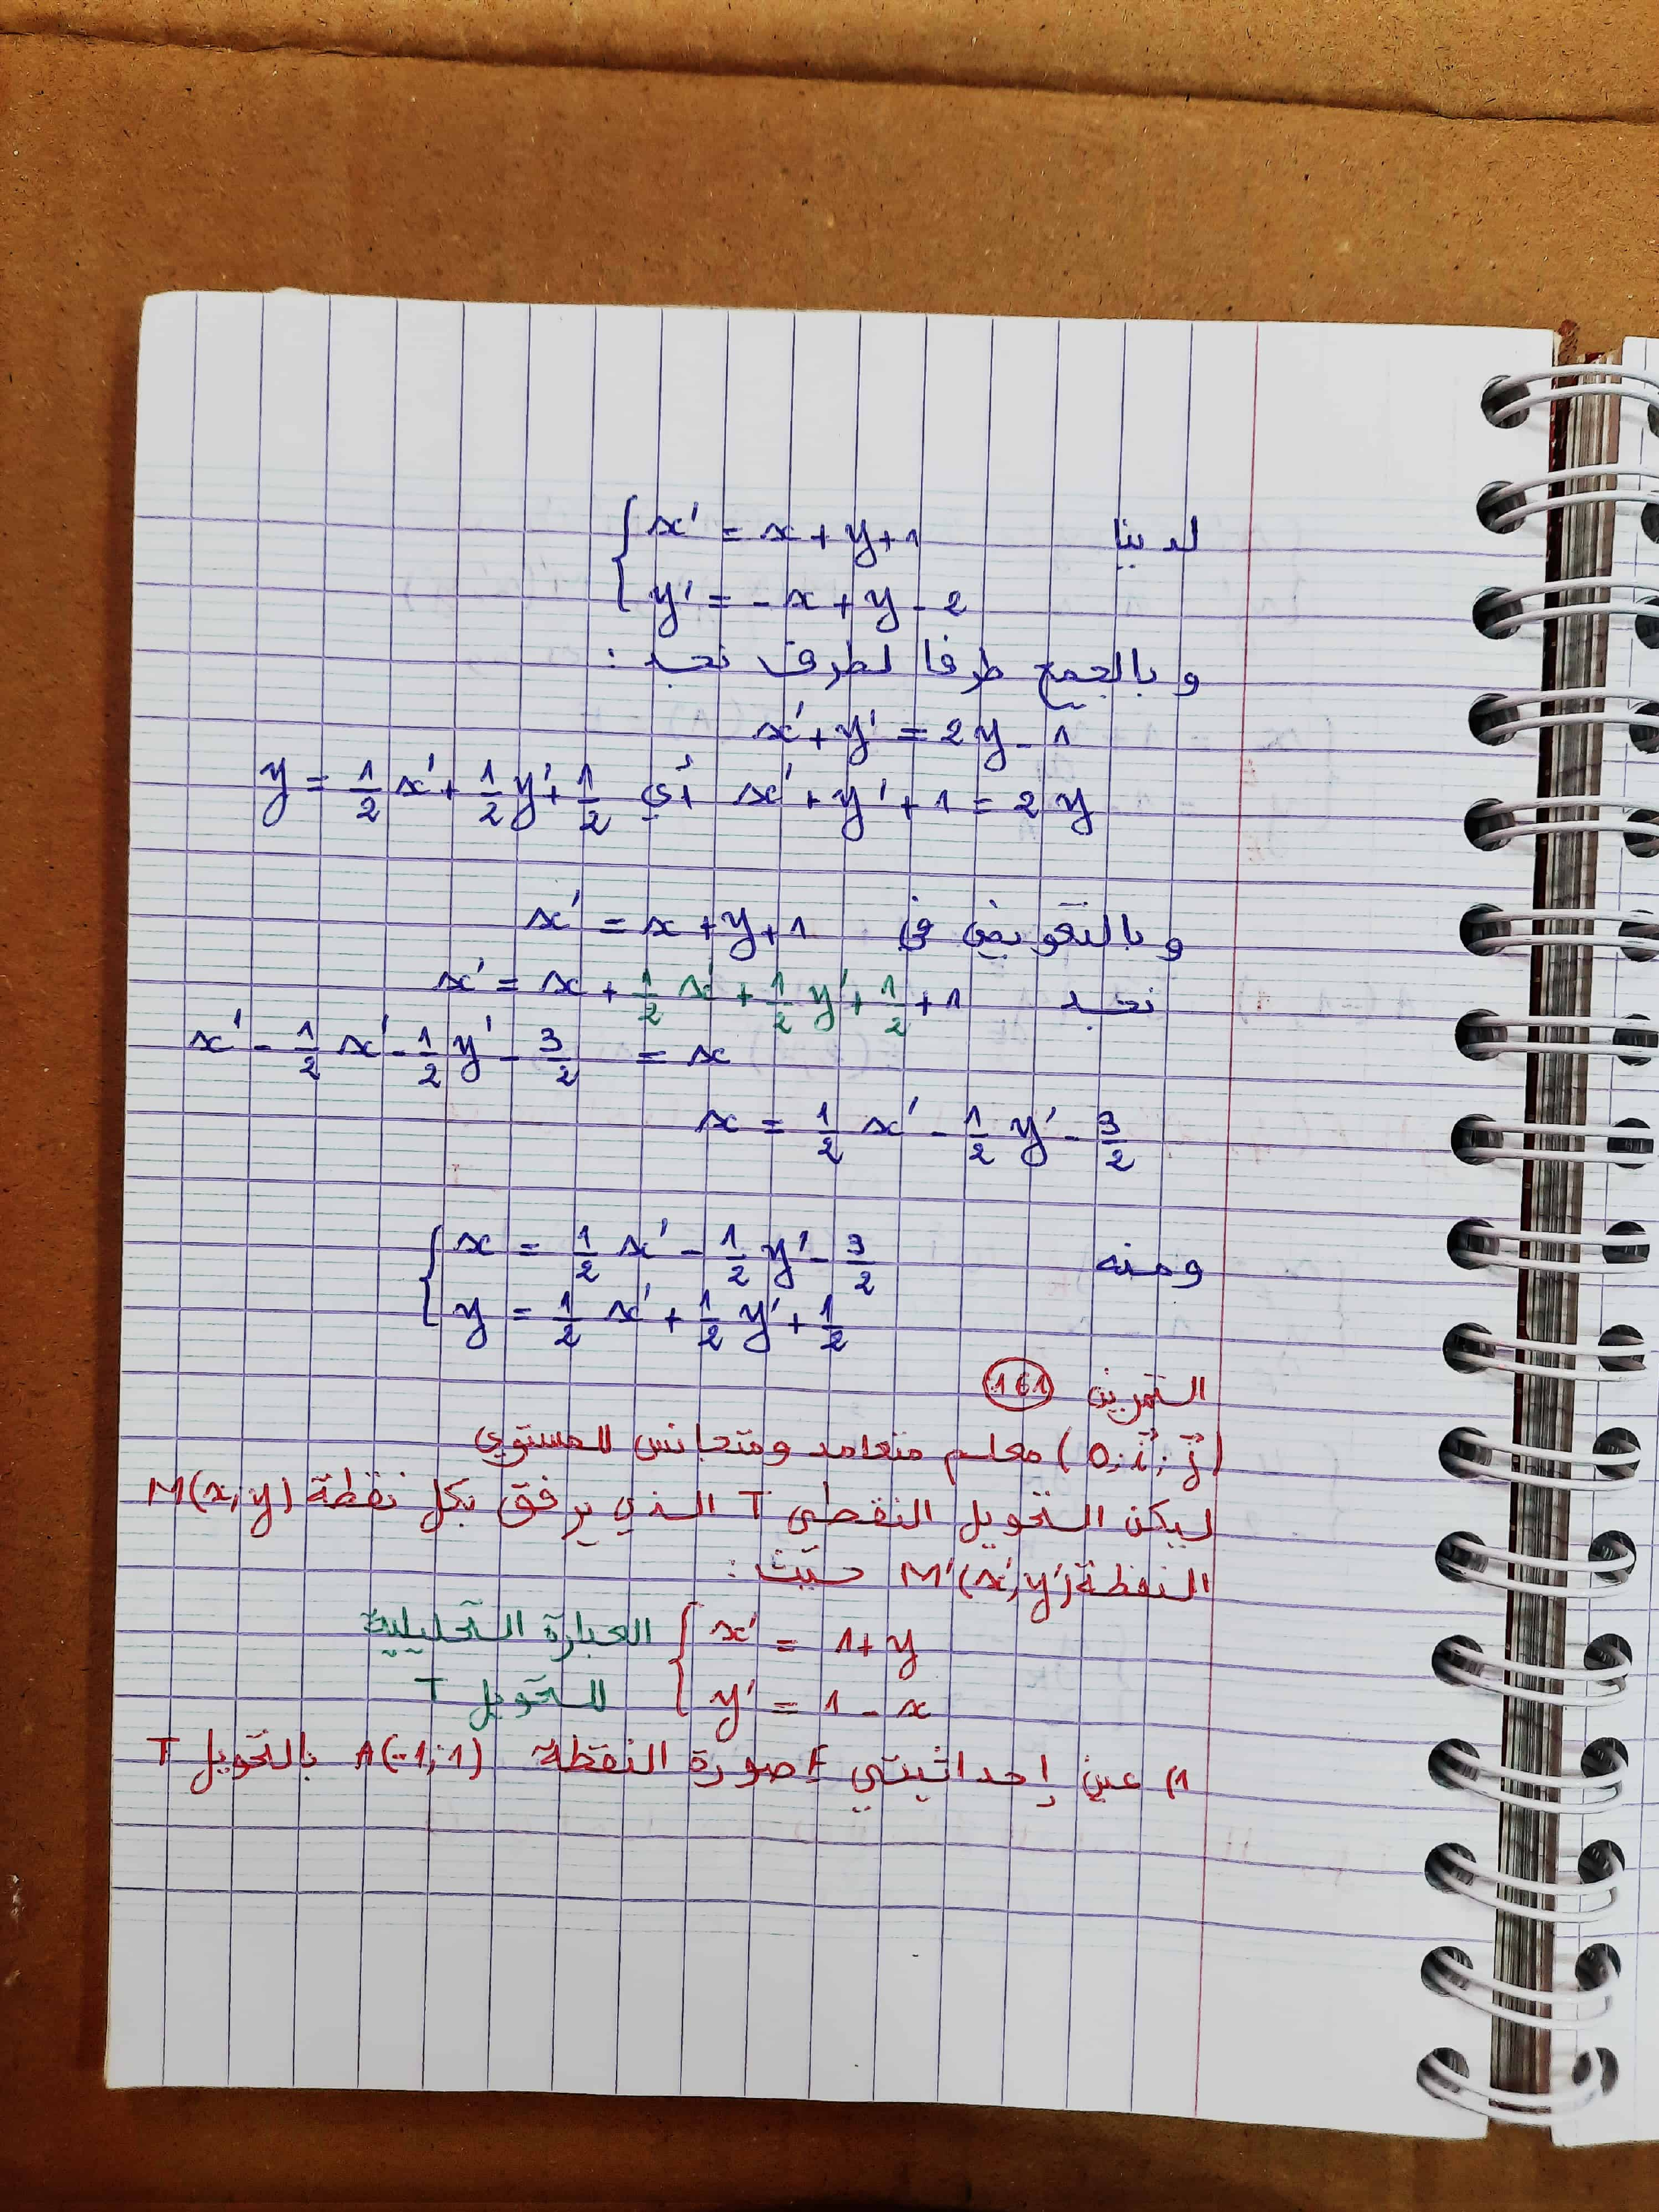 لدينا { x' = x + y + 1
y' = - x + y - 2
و بالجمع طرفا لطرف نجد :
x' + y' = 2y - 1
x' + y' + 1 = 2y أي y = 1/2 x' + 1/2 y' + 1/2
و بالتعويض في x' = x + y + 1
نجد x' = x + 1/2 x' + 1/2 y' + 1/2 + 1
x' - 1/2 x' - 1/2 y' - 3/2 = x
x = 1/2 x' - 1/2 y' - 3/2
ومنه { x = 1/2 x' - 1/2 y' - 3/2
y = 1/2 x' + 1/2 y' + 1/2
التمرين 161
(O; i⃗; j⃗) معلم متعامد ومتجانس للمستوي
ليكن التحويل النقطي T الذي يرفق بكل نقطة M(x; y)
النقطة M'(x'; y') حيث :
{ x' = 1 + y العبارة التحليلية
y' = 1 - x للتحويل T
1) عين إحداثيتي E صورة النقطة A(-1; 1) بالتحويل T